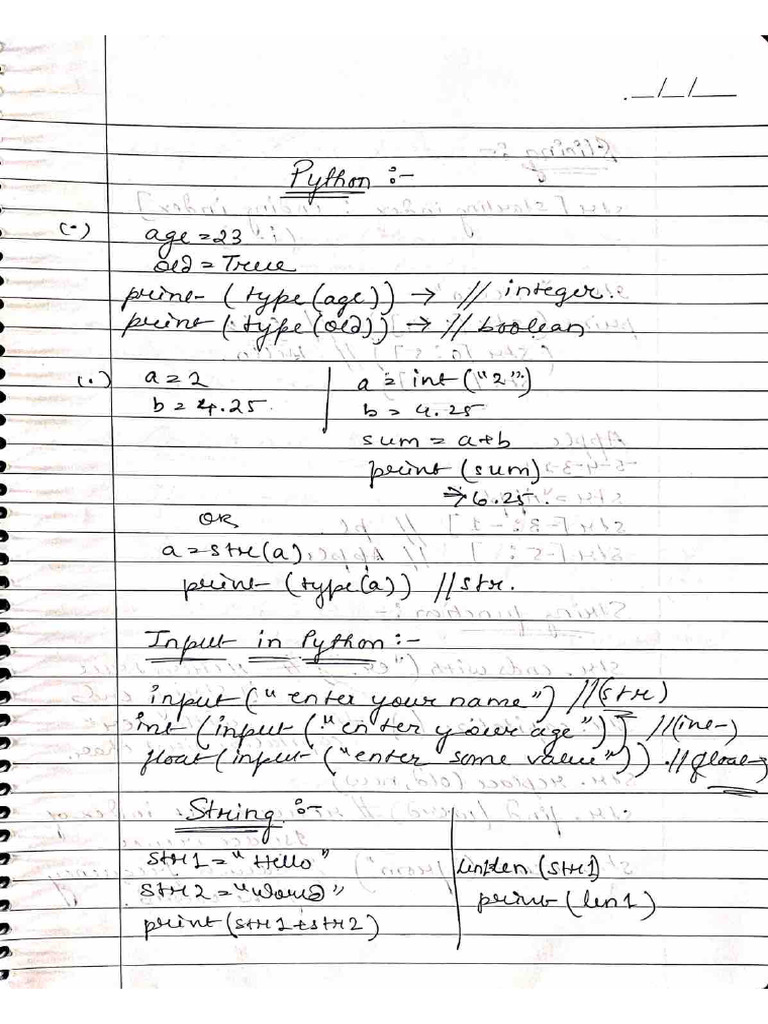 _/_/_
Python :-
(•)
age = 23
old = True
print (type(age)) → // integer.
print (type(old)) → // boolean
(•)
a = 2
b = 4.25.
a = int("2")
b = 4.25
sum = a+b
print (sum)
→ 6.25.
OR
a = str(a)
print (type(a)) //str.
Input in Python :-
input ("enter your name") //(str)
int (input ("enter your age")) //(int)
float (input ("enter some value")) . //(float)
String :-
str1 = "Hello"
str2 = "World"
print (str1+str2)
len (str1)
print (len1)